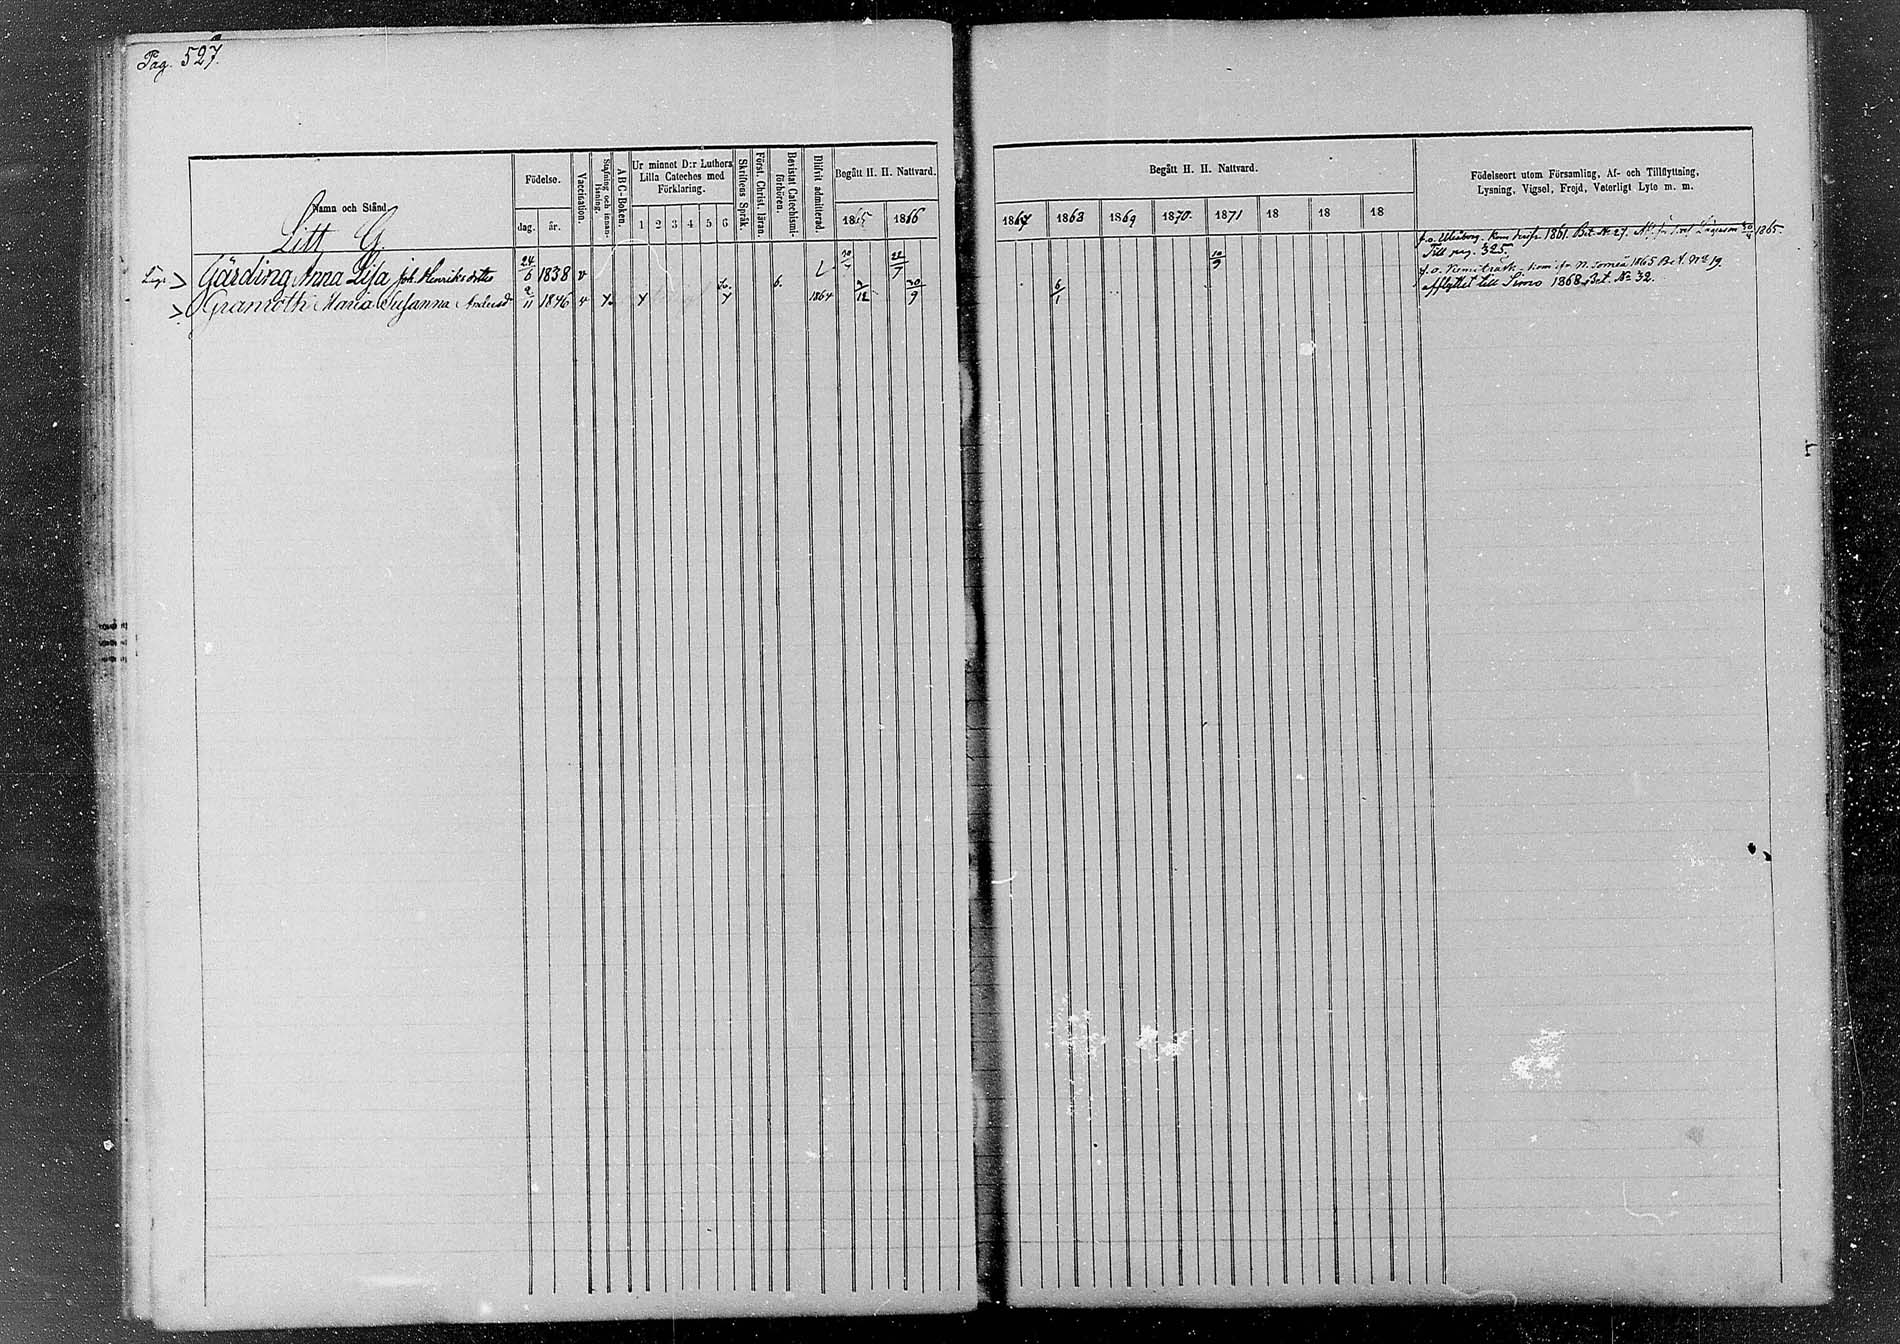 Pag. 527.
Namn och Stånd.
Litt G.
Födelse.
dag.
år.
Vaccination.
Stafning och innan-
läsning.
ABC-Boken.
Ur minnet D:r Luthers
Lilla Cateches med
Förklaring.
1 2 3 4 5 6
Skriftens Språk.
Först. Christ. läran.
Bevistat Catechismi-
förhören.
Blifvit admitterad.
Begått H. H. Nattvard.
1865 1866
Gärding Anna Lisa Joh. Henriksdotter 24/6 1838 v 6. 30/7 22/7
Granroth Maria Susanna Andersd 2/11 1846 v 1864 2/12 30/9
Begått H. H. Nattvard.
1867 1868 1869 1870. 1871 18 18 18
10/9
6/1
Födelseort utom Församling, Af- och Tillflyttning,
Lysning, Vigsel, Frejd, Veterligt Lyte m. m.
f. o. Uleåborg. Kom 1861. Bet. Nr 27. 1865.
Till pag. 325.
f. o. Kemiträsk, kom fr. N. Torneå 1865 Bet. No 19.
afflyttet till Simo 1868. Bet. No 32.